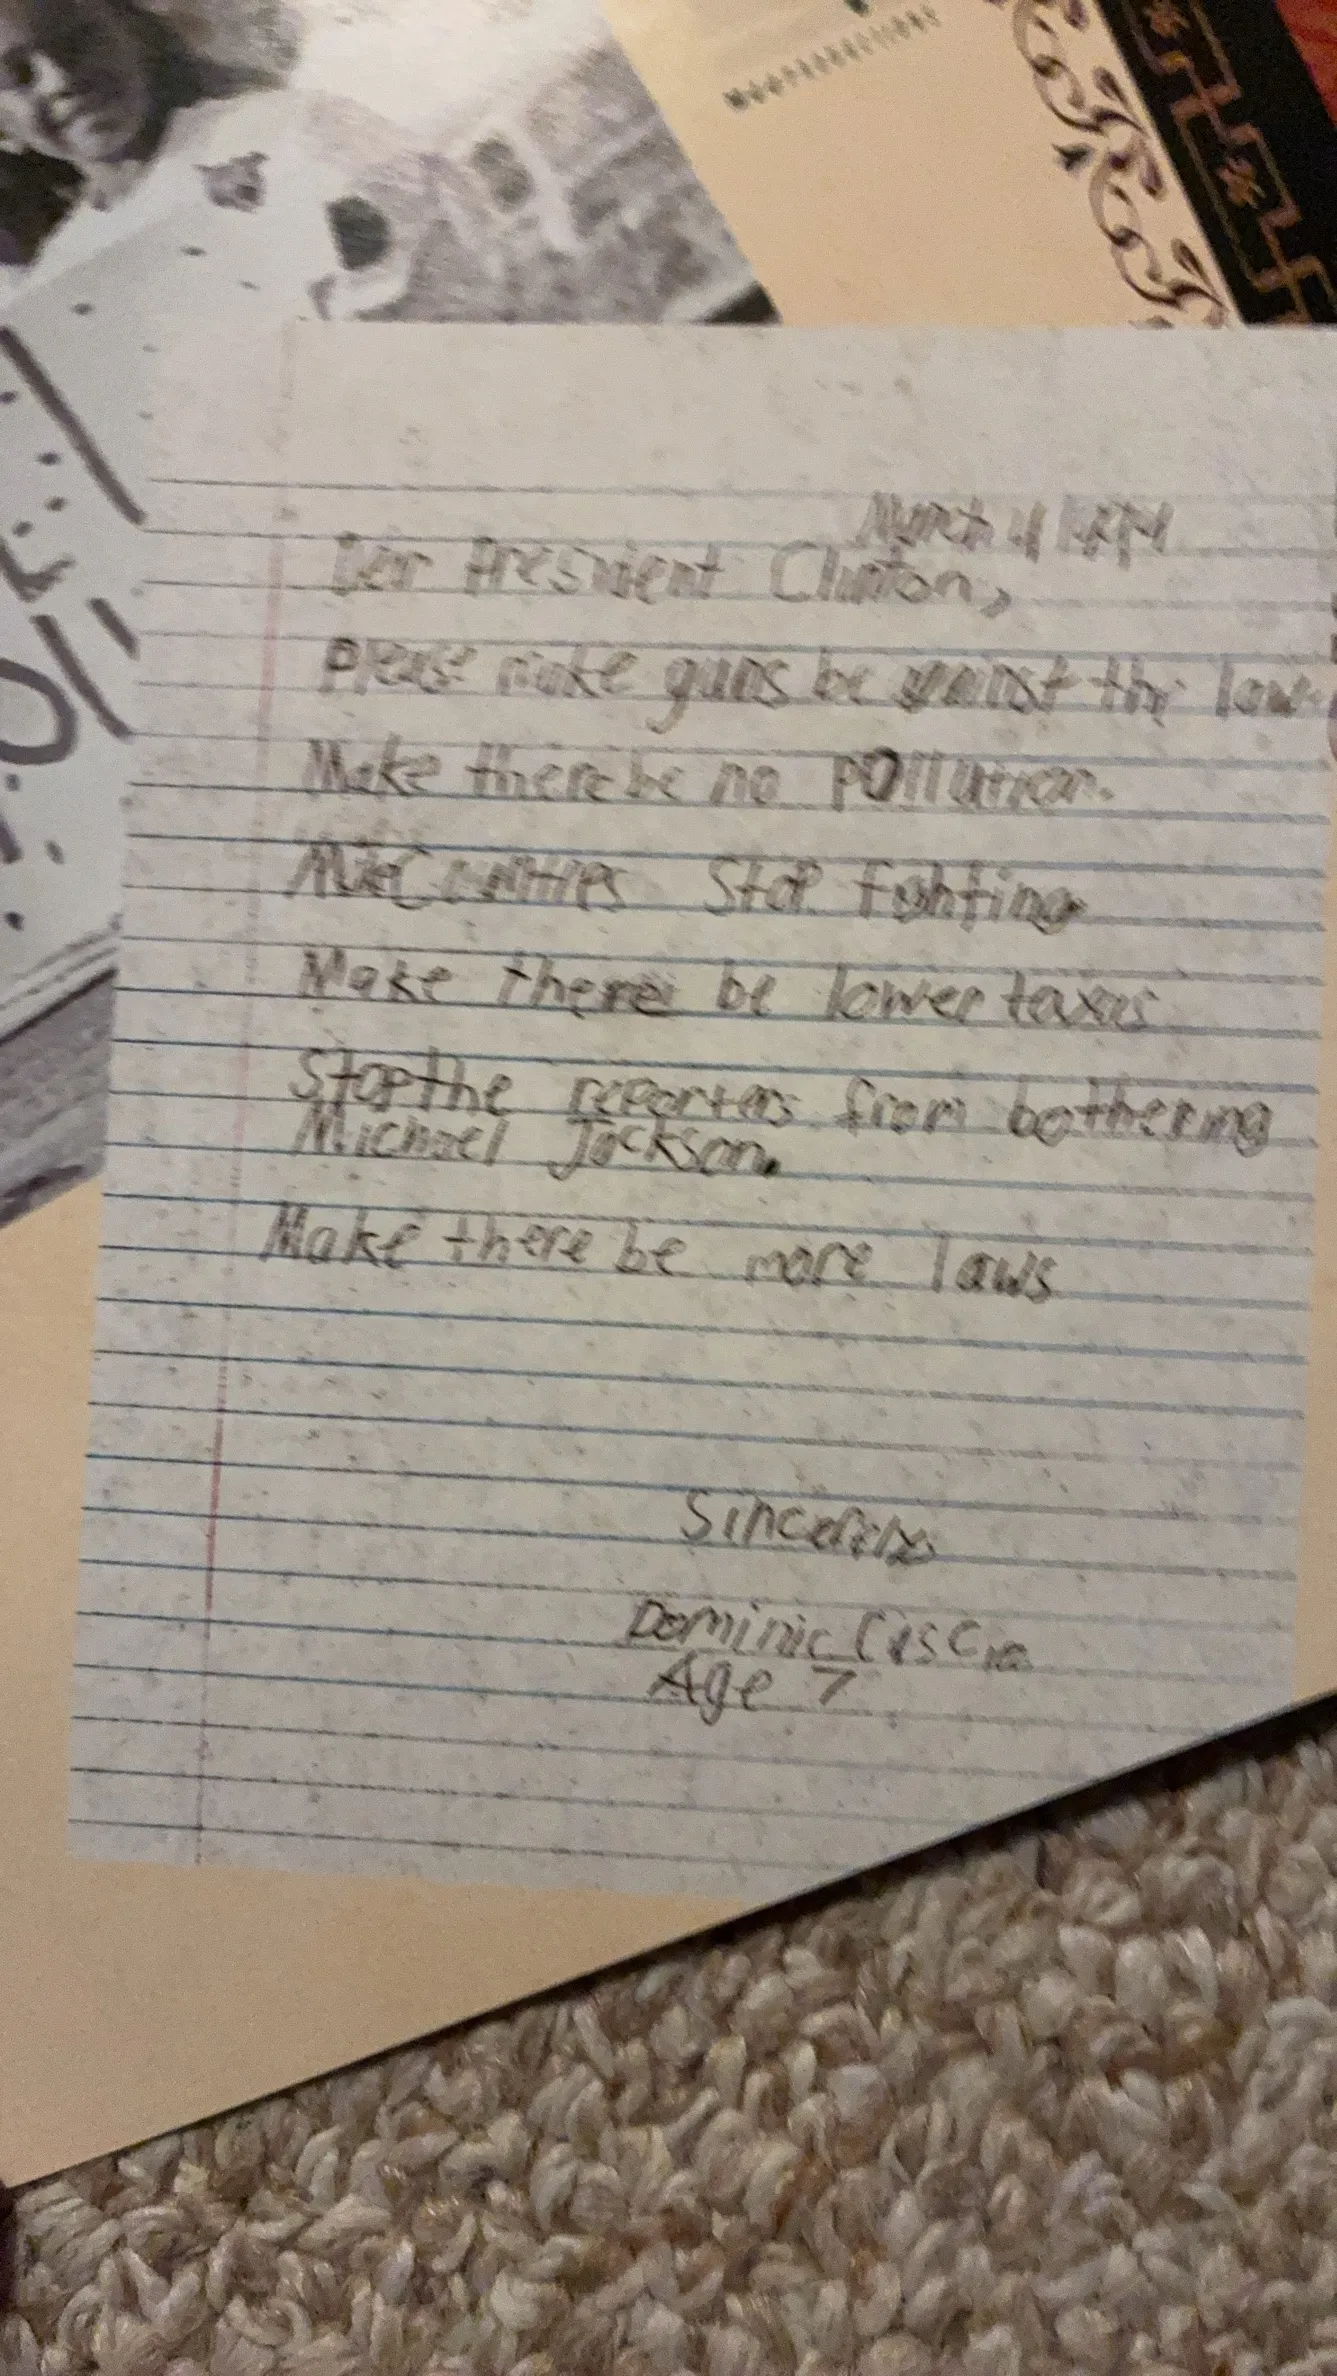 March 4 1994
Der President Clinton,
Please make guns be against the law.
Make there be no pollution.
Make Countries Stop fighting.
Make there be lower taxes
Stop the reporters from bothering
Michael Jackson.
Make there be more laws
Sincerely
Dominic Ciscia
Age 7